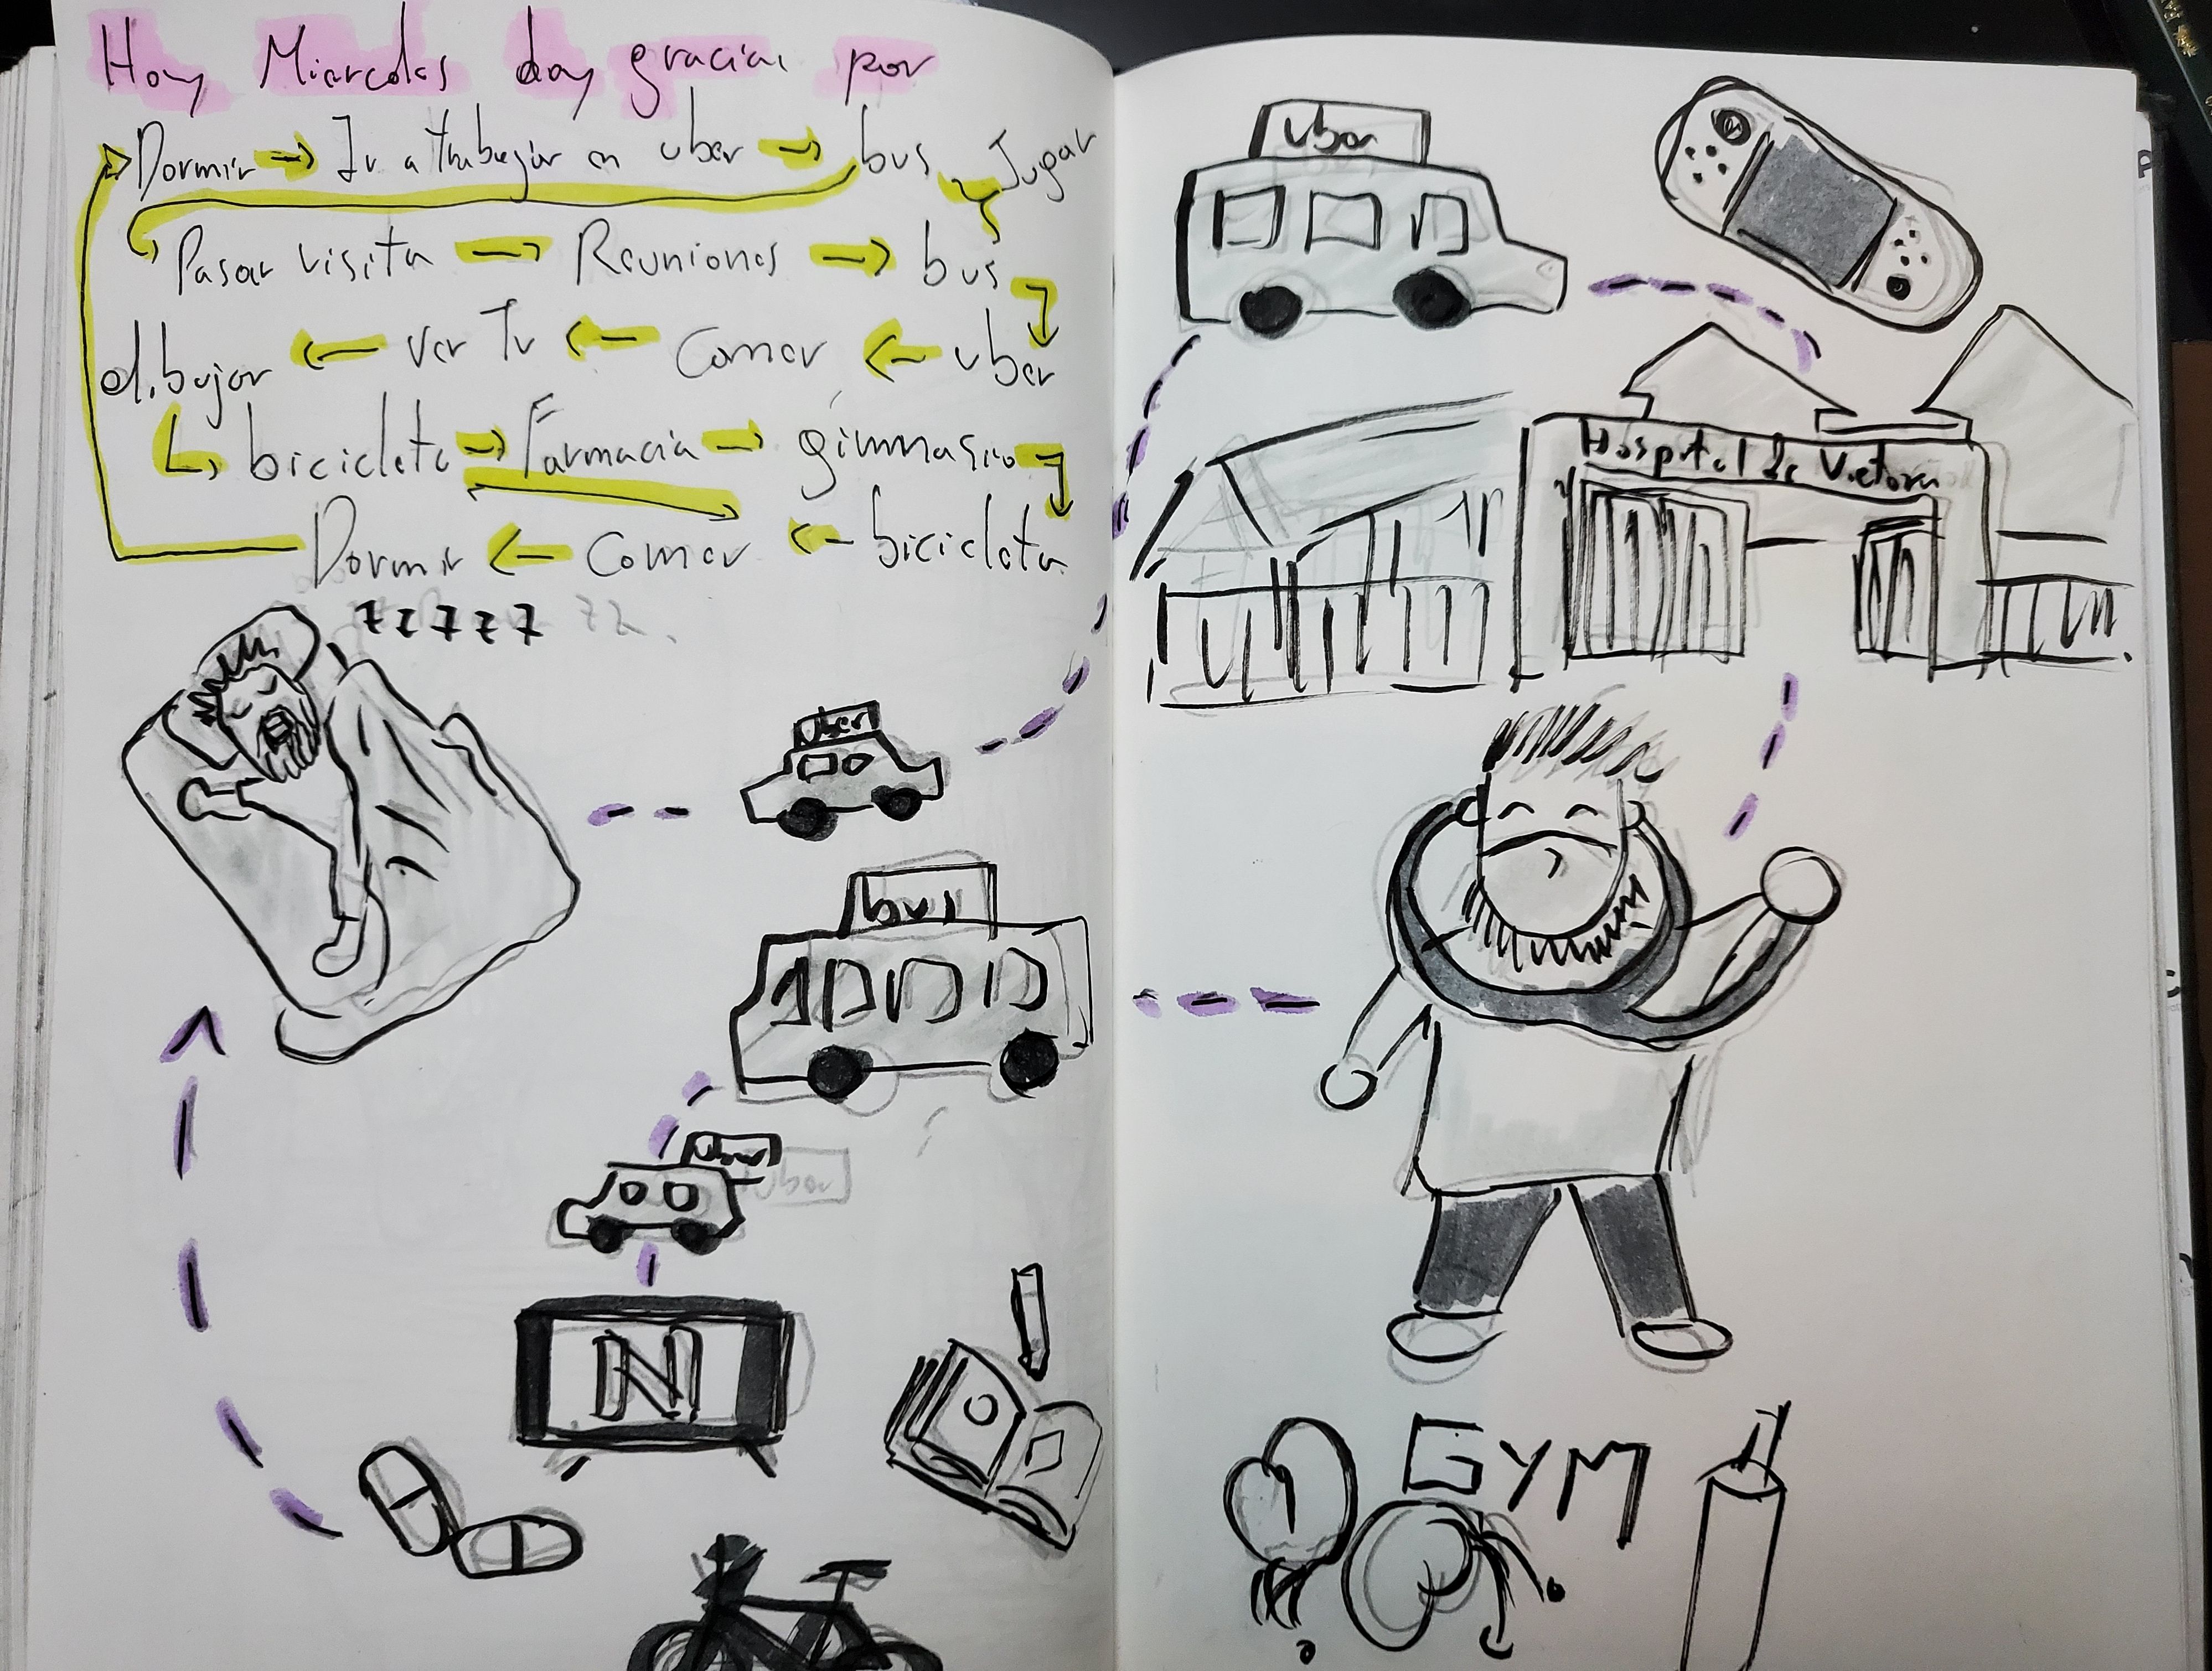 Hoy Miercoles doy gracias por
Dormir → Ir a trabajar en uber → bus Jugar
Pasar visita → Reuniones → bus
dibujar ← Ver Tv ← Comer ← uber
bicicleta → Farmacia → gimnasio
Dormir ← Comer ← bicicleta
zzzzz zz.
Uber
bus
Uber
Uber
N
Uber
Hospital de Victoria
GYM